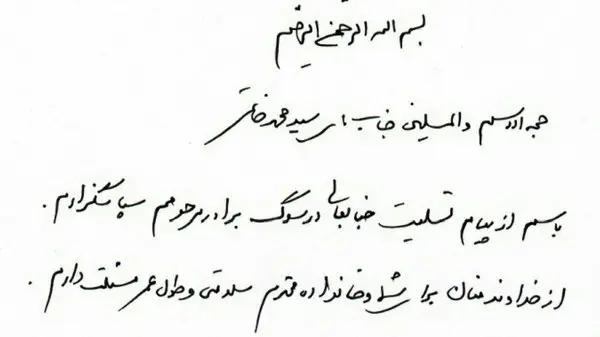 بسم الله الرحمن الرحیم
حجه الاسلام والمسلمین جناب آقای سید محمد خاتمی
با سلام از پیام تسلیت جنابعالی در سوگ برادر مرحومم سپاسگزارم .
از خداوند منان برای شما و خانواده محترم سلامتی و طول عمر مسئلت دارم .